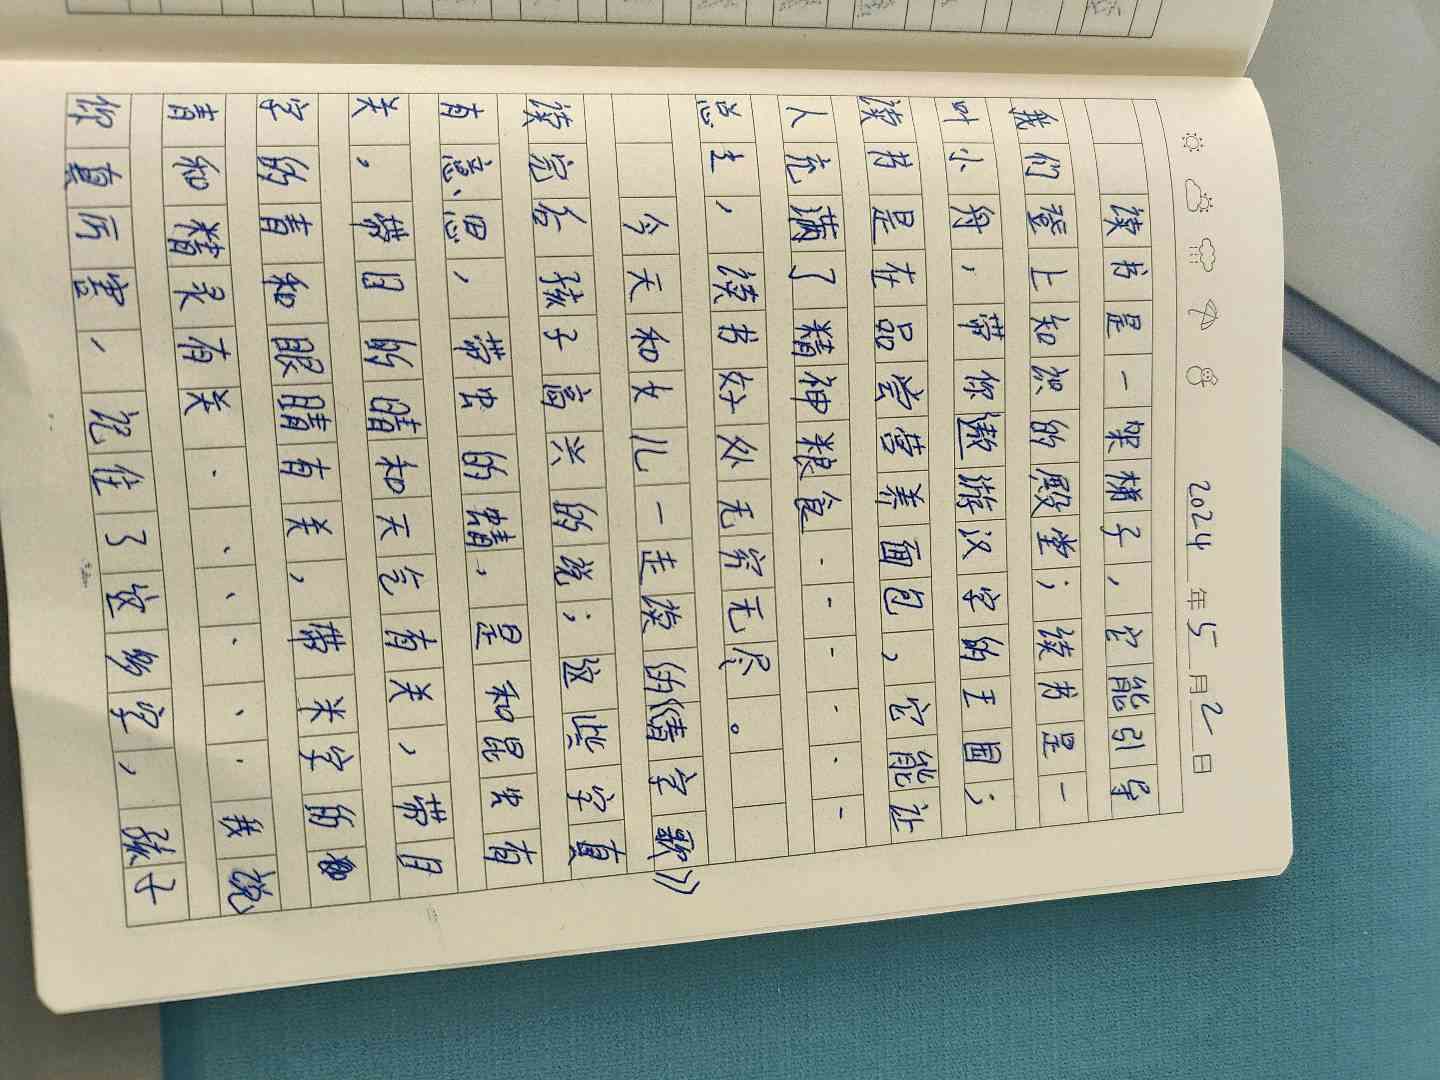 2024年5月2日
读书是一架梯子，它能引导
我们登上知识的殿堂；读书是一
叶小舟，带你遨游汉字的王国；
读书是在品尝营养面包，它能让
人充满了精神粮食······
总之，读书好处无穷无尽。
今天和女儿一走读的《猜字歌》
读完后孩子高兴的说；这些字真
有意思，带虫的蜻，是和昆虫有
关，带日的晴和天气有关，带目
字的青和眼睛有关，带米字的
青和精灵有关·······我说
你真厉害，记住了这多字，孩子